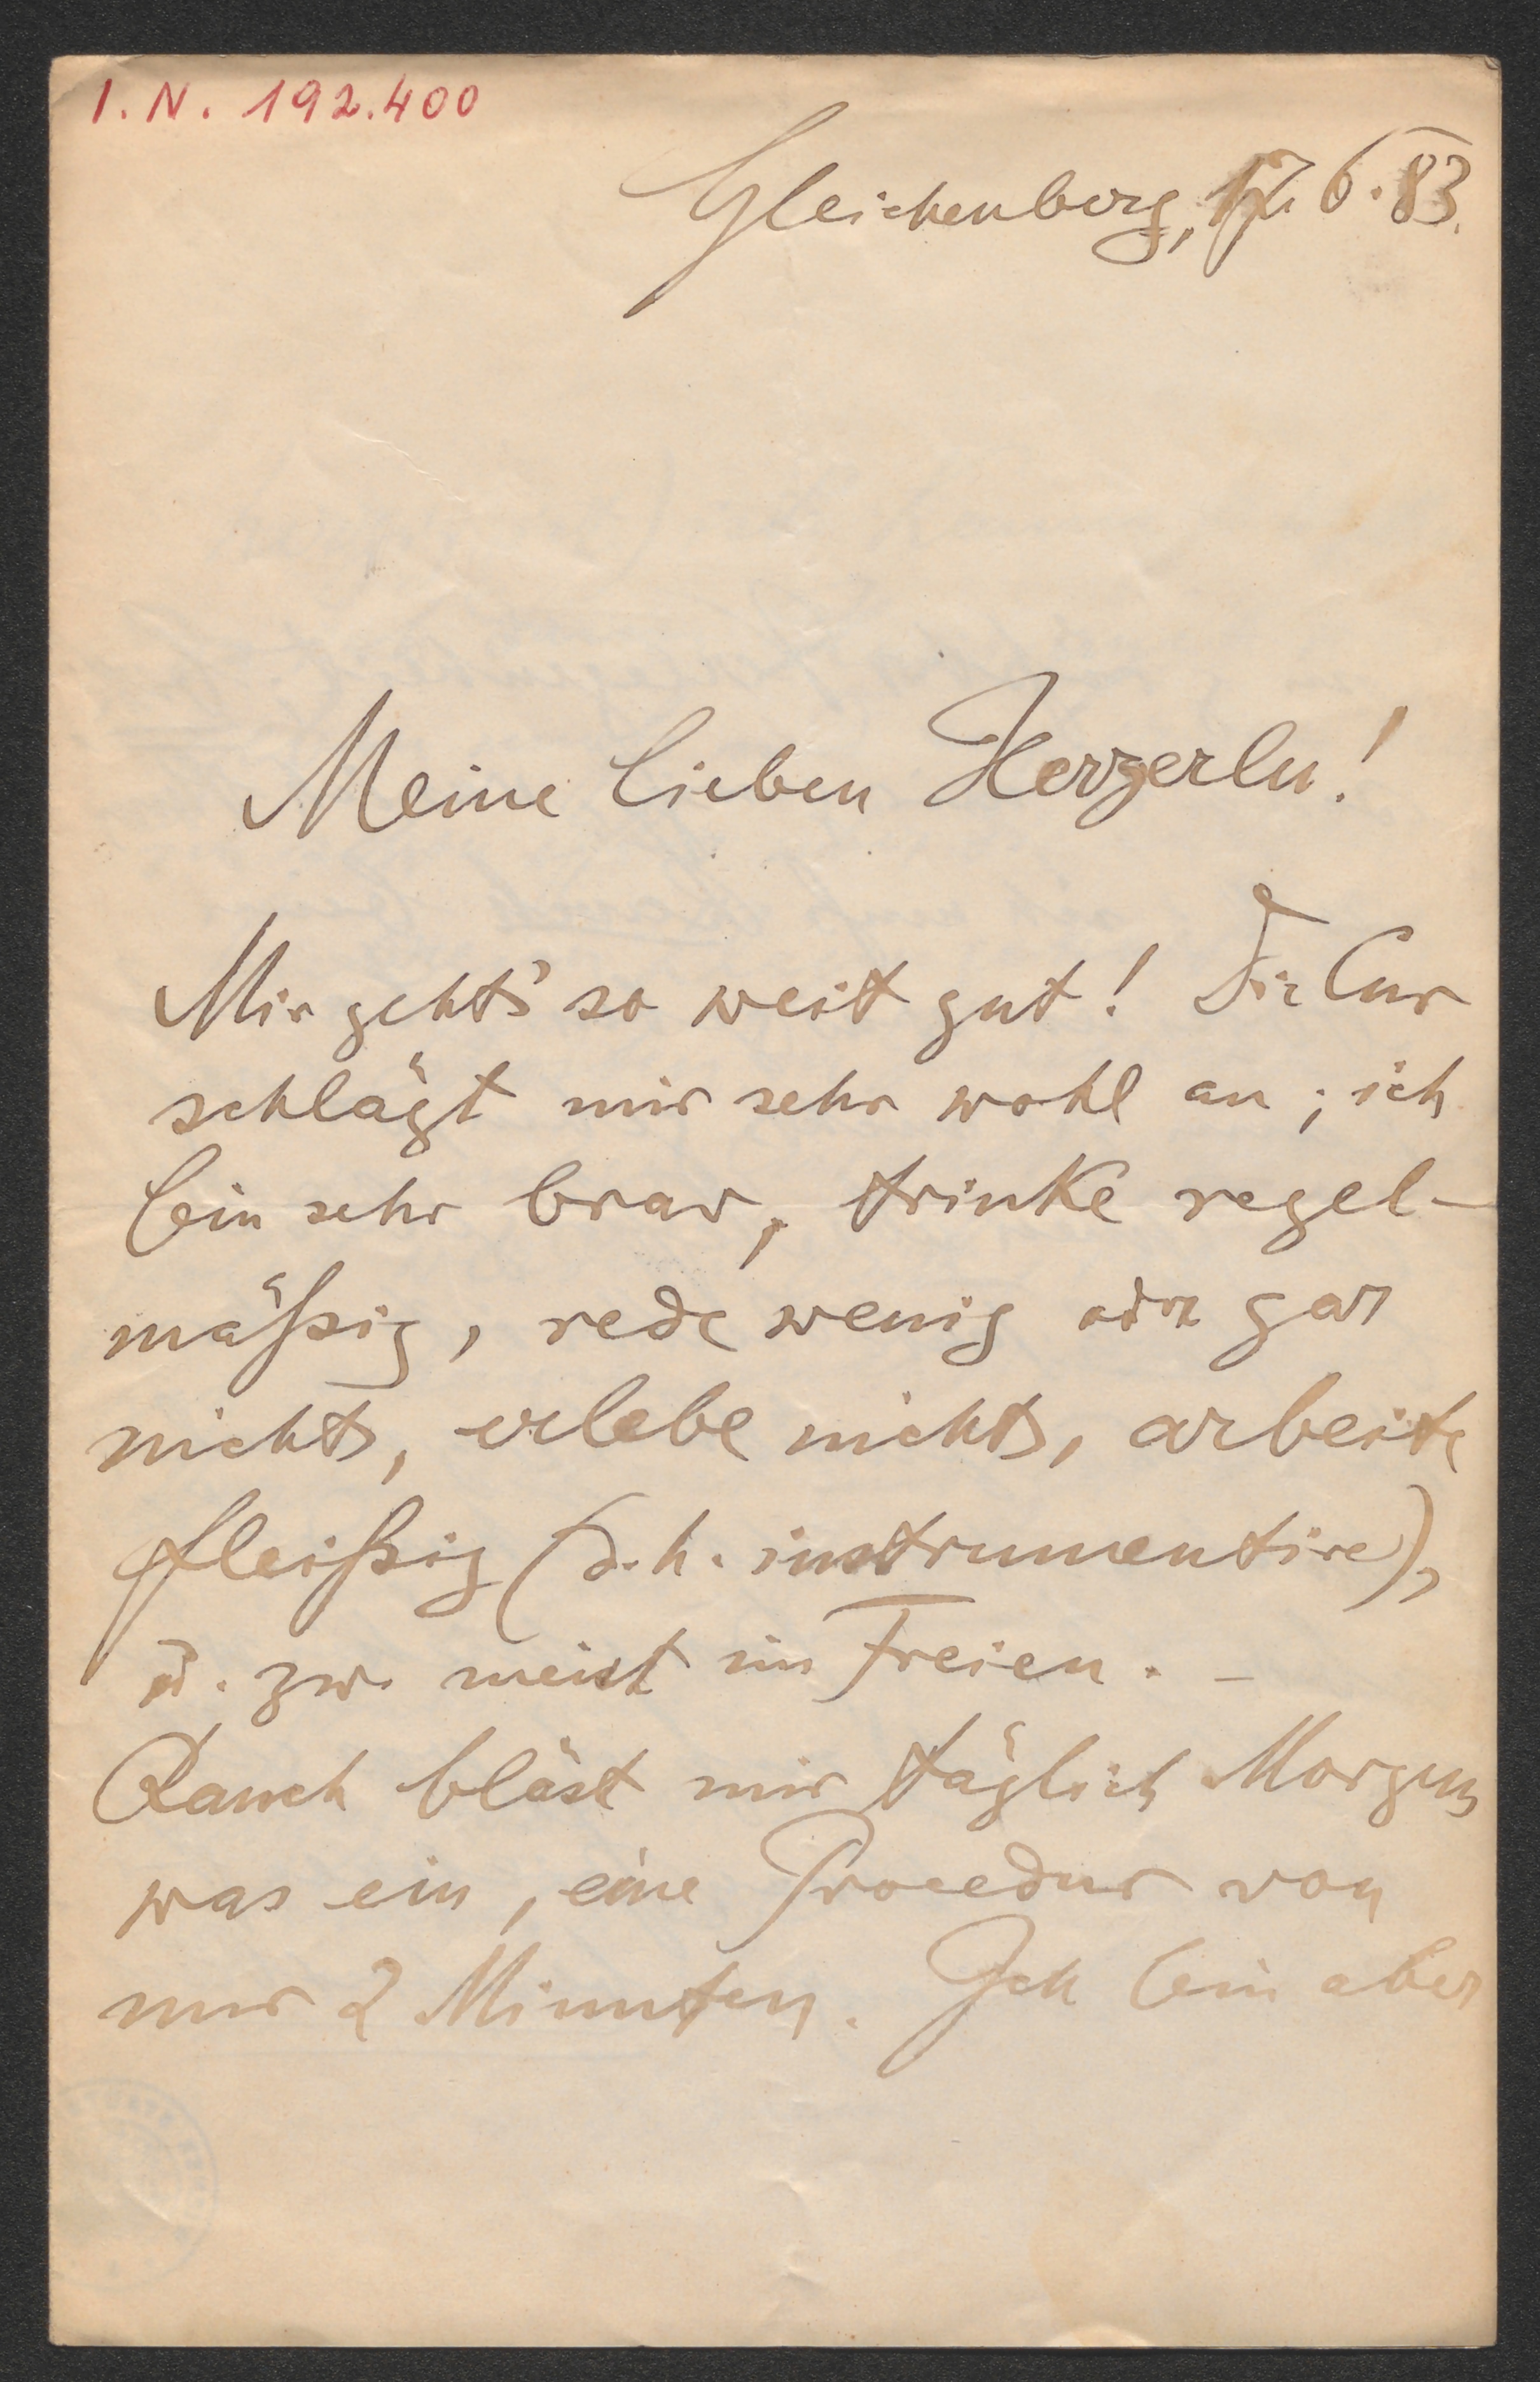 I. N. 192.400
Gleichenberg, 17. 6. 83.
Meine lieben Herzerln!
Mir geht's so weit gut! Die Cur
schlägt mir sehr wohl an; ich
bin sehr brav, trinke regel-
mäßig, rede wenig oder gar
nichts, erlebe nichts, arbeite
fleißig (d. h. instrumentire),
u. zw. meist im Freien. –
Rauch bläst mir täglich Morgens
was ein, eine Procedur von
nur 2 Minuten. Ich bin aber